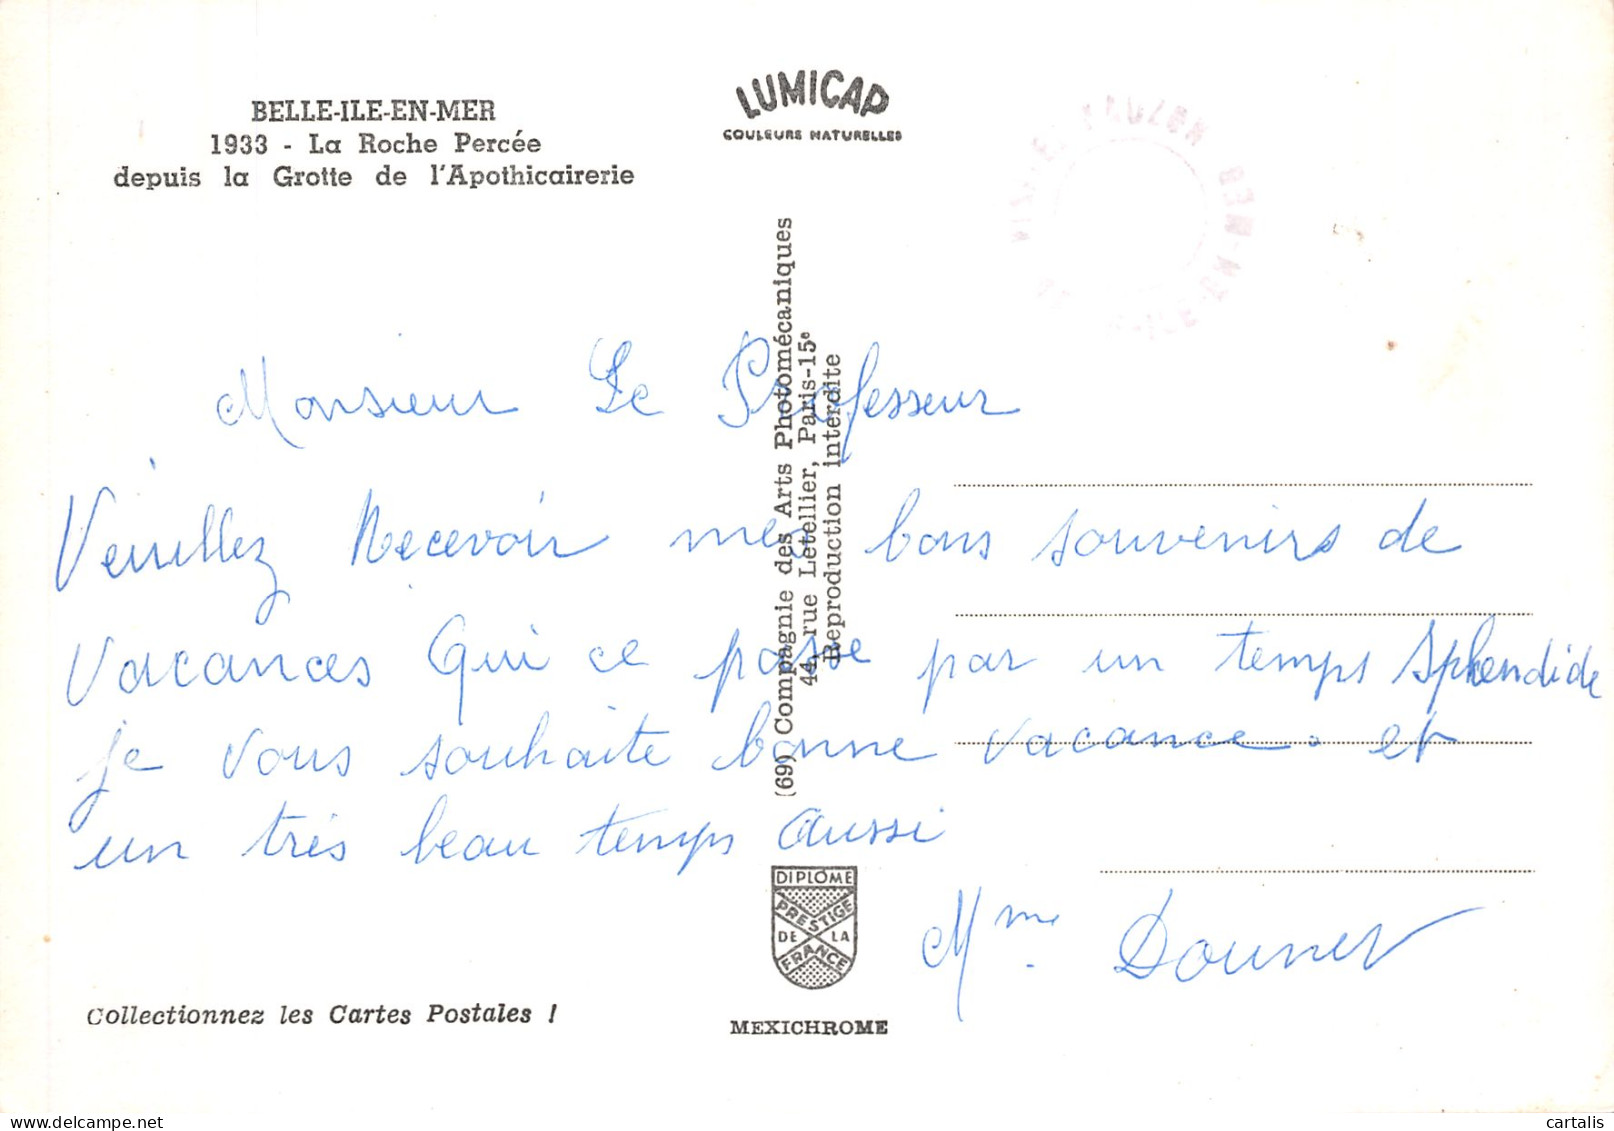 BELLE-ILE-EN-MER
1933 - La Roche Percée
depuis la Grotte de l'Apothicairerie
LUMICAP
COULEURS NATURELLES
Monsieur Le Professeur
Veuillez Recevoir mes bons souvenirs de
vacances Qui ce passe par un temps Splendide
je vous souhaite bonne vacance. et
un très beau temps Aussi
Mme
(69) Compagnie des Arts Photomécaniques
44, rue Letellier, Paris-15e
Reproduction interdite
DIPLOME
PRESTIGE
DE LA
FRANCE
Collectionnez les Cartes Postales !
MEXICHROME
cartalis